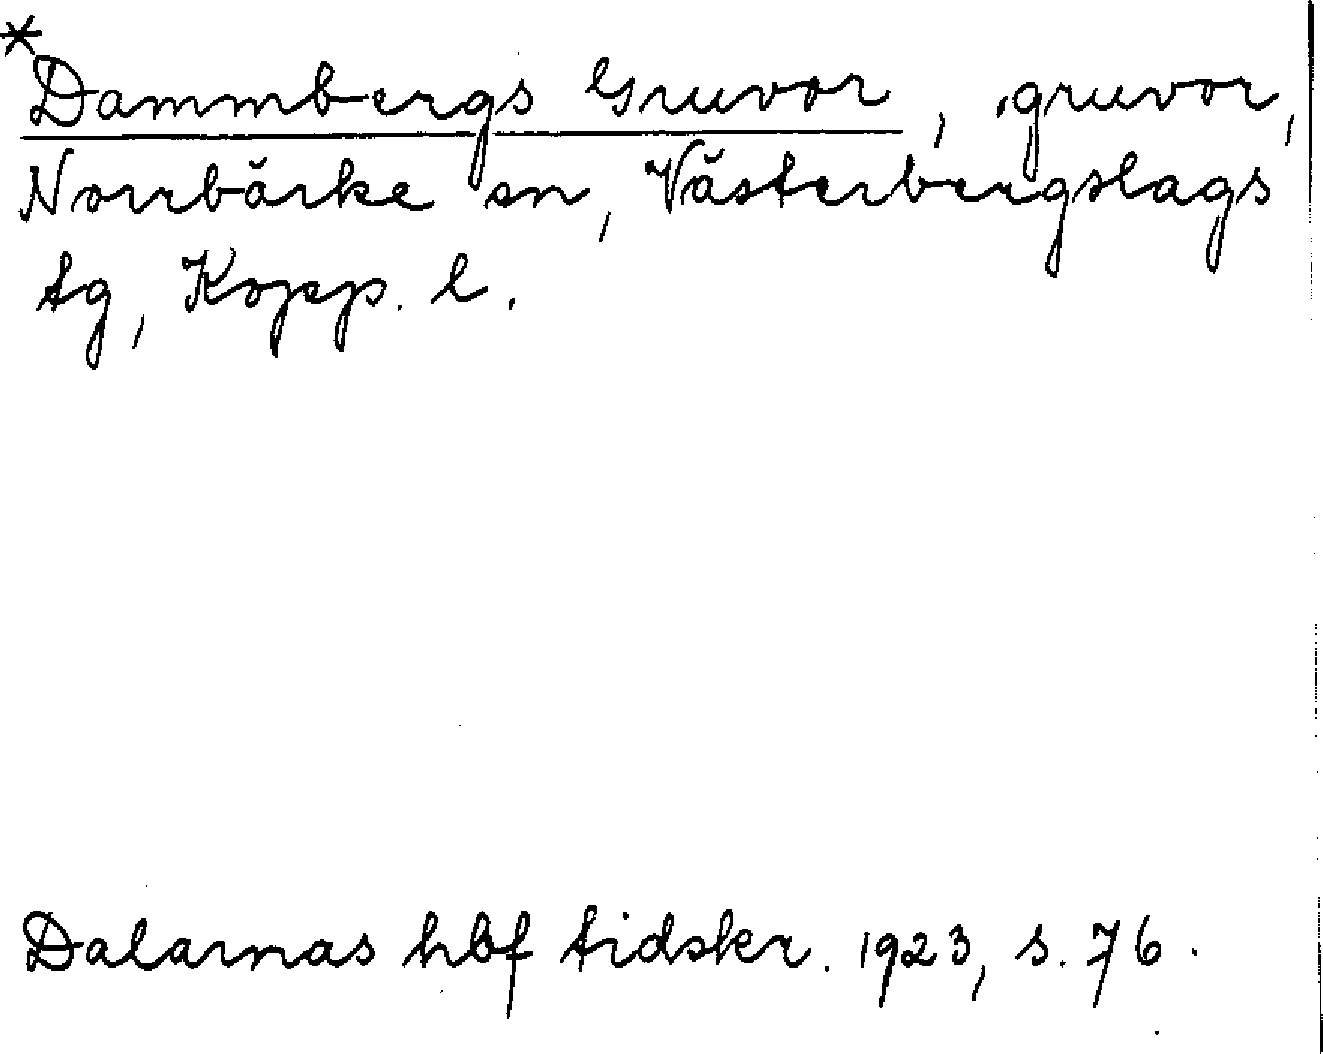 *
Dammbergs Gruvor, gruvor,
Norrbärke sn, Västerbergslags
tg, Kopp. l.
Dalarnas hbf tidskr. 1923, s. 76.